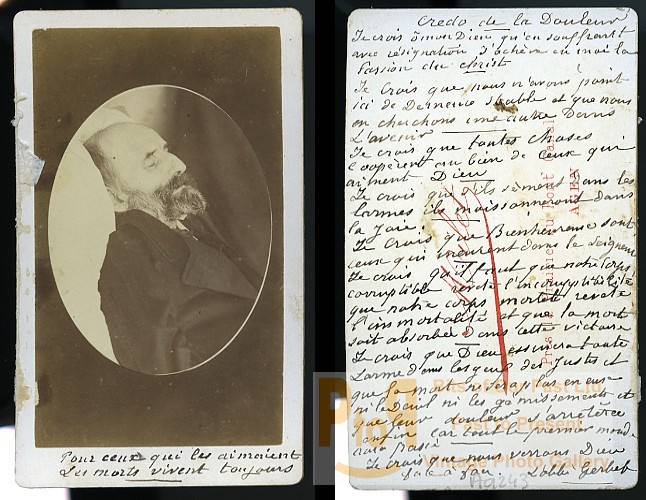 Pour ceux qui les aimaient
Les morts vivent toujours
Credo de la Douleur
Je crois ô mon Dieu qu'en souffrant
avec résignation j'achève en moi la
Passion du christ
Je Crois que nous n'avons point
ici de Demeure stable et que nous
en cherchons une autre Dans
L'avenir
Je crois que toutes choses
Coopèrent au bien de Ceux qui
aiment Dieu
Je crois que ils sèment dans les
larmes ils moissonneront Dans
la Joie
Je Crois que Bienheureux sont
ceux qui meurent dans le Seigneur
Je crois qu'il faut que notre corps
corruptible revête l'incorruptibilité
que notre corps mortel revête
l'immortalité et que la mort
soit absorbée Dans cette victoire
Je crois que Dieu essuiera toute
Larme dans les yeux des Justes et
que la mort ne sera plus en eux
ni le Deuil ni les gémissements et
que leur douleur s'arrêtera
enfin Car tout le premier monde
sera passé
Je crois que nous verrons Dieu
face à face
L'abbé Gerbet
du Pont Canal
AGEN
PBA
Bits of Our Past Ltd
Past to Present
Vintage Photo Gallery